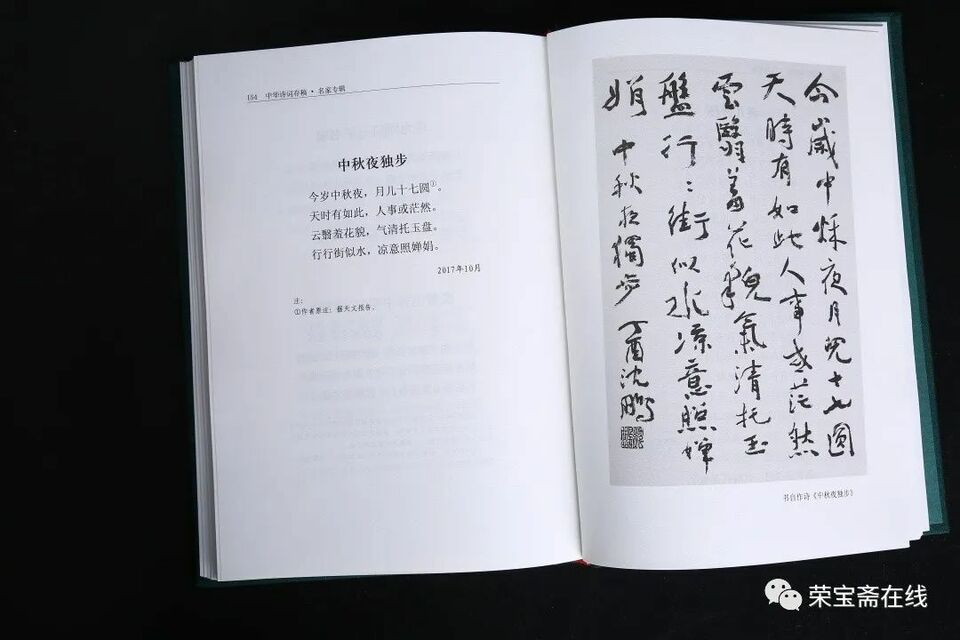 154 中华诗词存稿·名家专辑
中秋夜独步
今岁中秋夜，月儿十七圆①。
天时有如此，人事或茫然。
云翳羞花貌，气清托玉盘。
行行街似水，凉意照婵娟。
2017年10月
注：
①作者原注：据天文报告。
今歲中秌夜月兒十七圆
天時有如此人事或茫然
雲翳羞花貌氣清托玉
盤行〻街似水凉意照婵
娟 中秋夜獨步 丁酉沈鹏
书自作诗《中秋夜独步》
荣宝斋在线